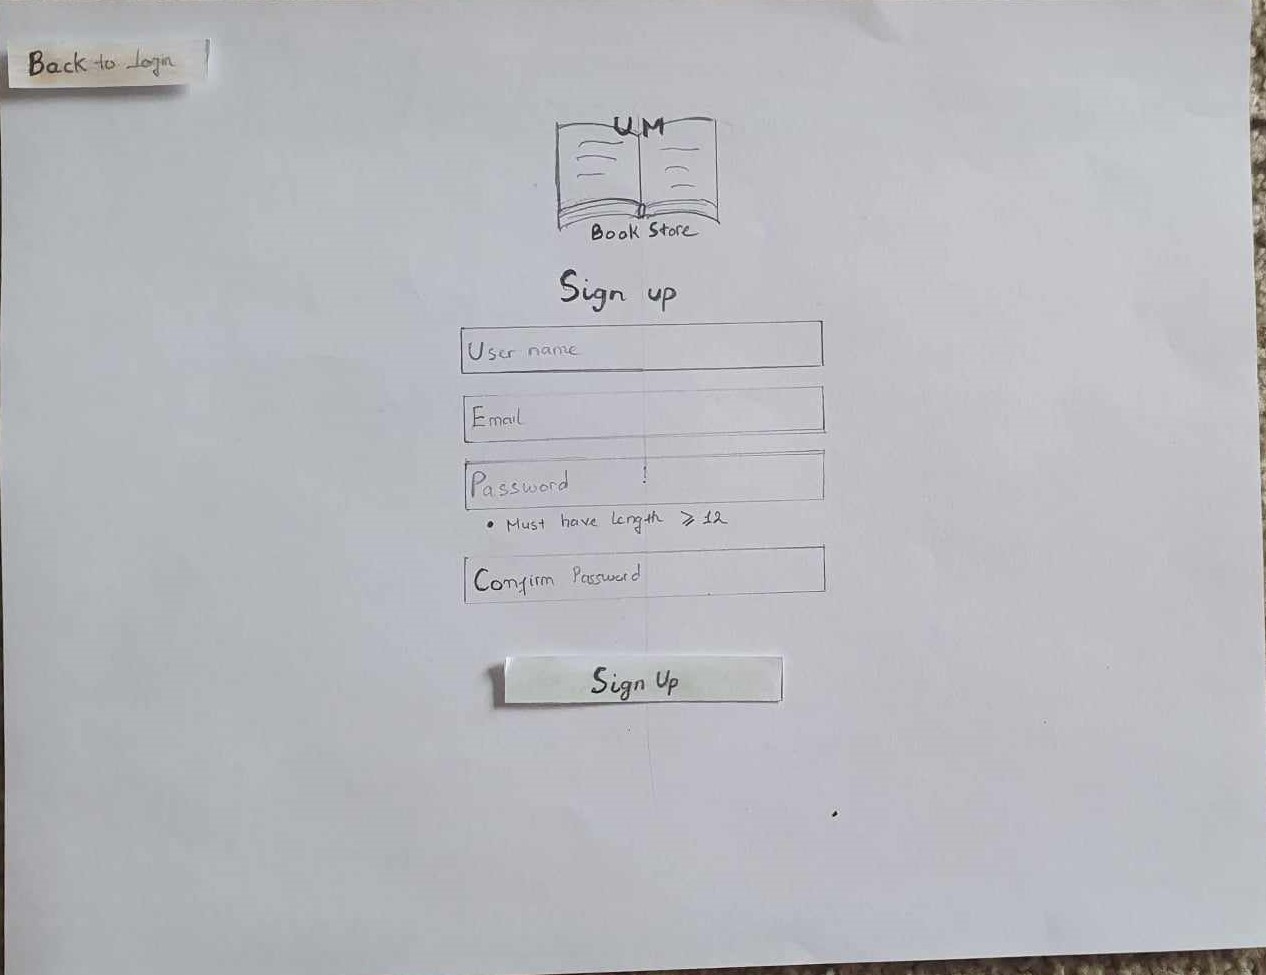 Back to Login
UM
Book Store
Sign up
User name
Email
Password
• Must have length ⩾ 12
Confirm Password
Sign Up